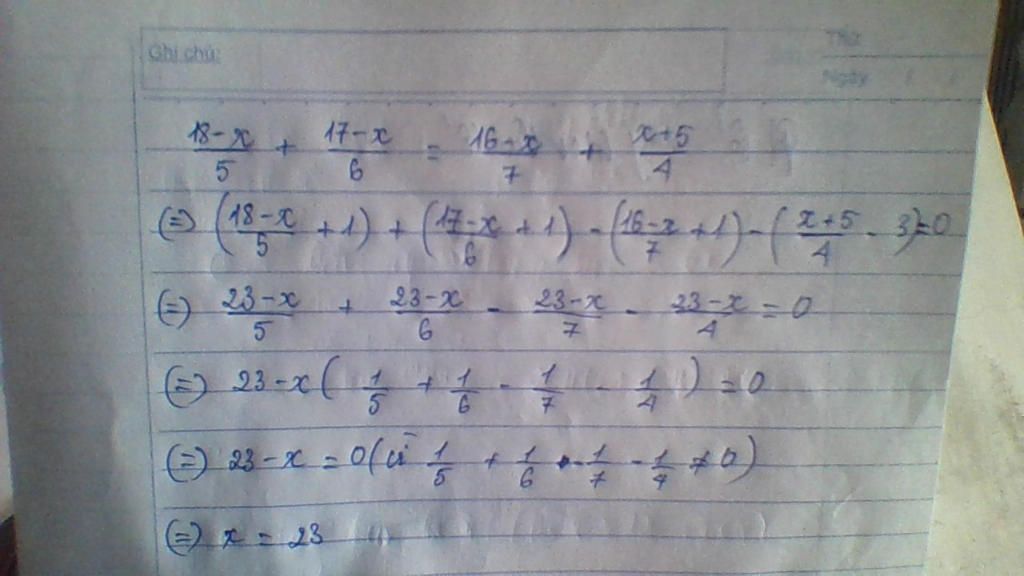 Ghi chú:
Thứ:
Ngày / /
18-x/5 + 17-x/6 = 16-x/7 + x+5/4
(=) (18-x/5 + 1) + (17-x/6 + 1) - (16-x/7 + 1) - (x+5/4 - 3) = 0
(=) 23-x/5 + 23-x/6 - 23-x/7 - 23-x/4 = 0
(=) 23-x (1/5 + 1/6 - 1/7 - 1/4) = 0
(=) 23-x = 0 ( 1/5 + 1/6 - 1/7 - 1/4 ≠ 0)
(=) x = 23